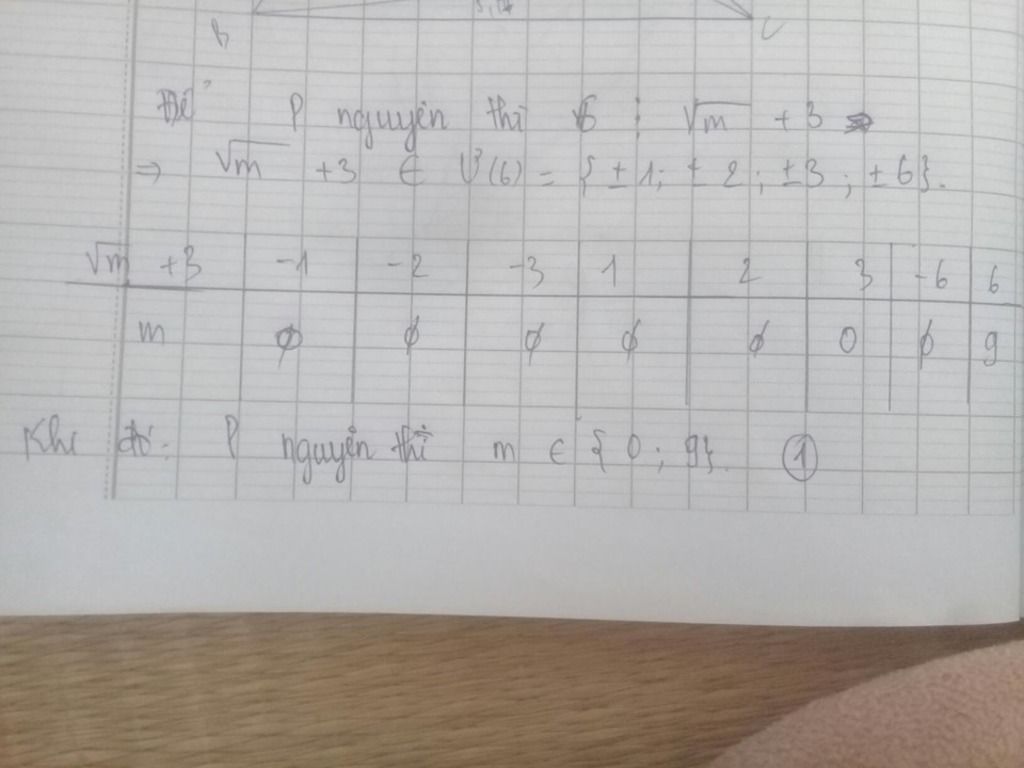 B C
Để P nguyên thì 6 ⋮ √m + 3
⇒ √m + 3 ∈ Ư(6) = {±1; ±2; ±3; ±6}.
√m + 3 -1 -2 -3 1 2 3 -6 6
m ∅ ∅ ∅ ∅ ∅ 0 ∅ 9
Khi đó: P nguyên thì m ∈ {0; 9}. ①